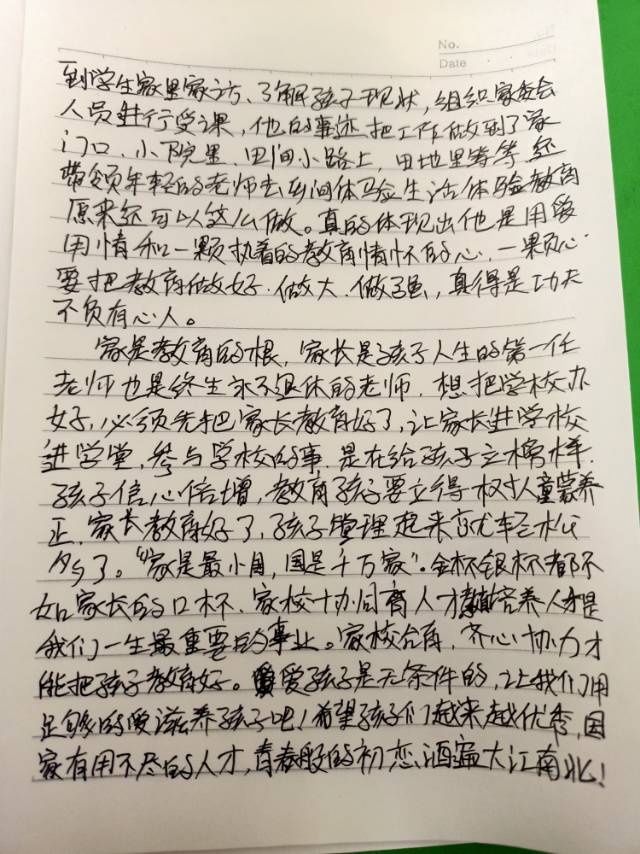 No.
Date
到学生家里家访、了解孩子现状,组织家委会
人员进行受课,他的事迹把工作做到了家
门口、小院里、田间小路上,田地里等等还
带领年轻的老师去乡间体验生活体验教育
原来还可以这么做。真的体现出他是用爱
用情和一颗执着的教育情怀的心,一颗心
要把教育做好.做大.做强,真得是功夫
不负有心人。
家是教育的根,家长是孩子人生的第一任
老师也是终生永不退休的老师.想把学校办
好,必须先把家长教育好了,让家长进学校
进学堂,参与学校的事.是在给孩子立榜样.
孩子信心倍增,教育孩子要立得
童蒙养
正.家长教育好了,孩子管理起来就轻松
多了。“家是最小国,国是千万家”.金杯银杯都不
如家长的口杯.家校协同育人才培养人才是
我们一生最重要的事业。家校合育,齐心协力才
能把孩子教育好。爱孩子是无条件的,让我们用
足够的爱滋养孩子吧!希望孩子们越来越优秀,国
家有用不尽的人才,青春般的初恋洒遍大江南北!